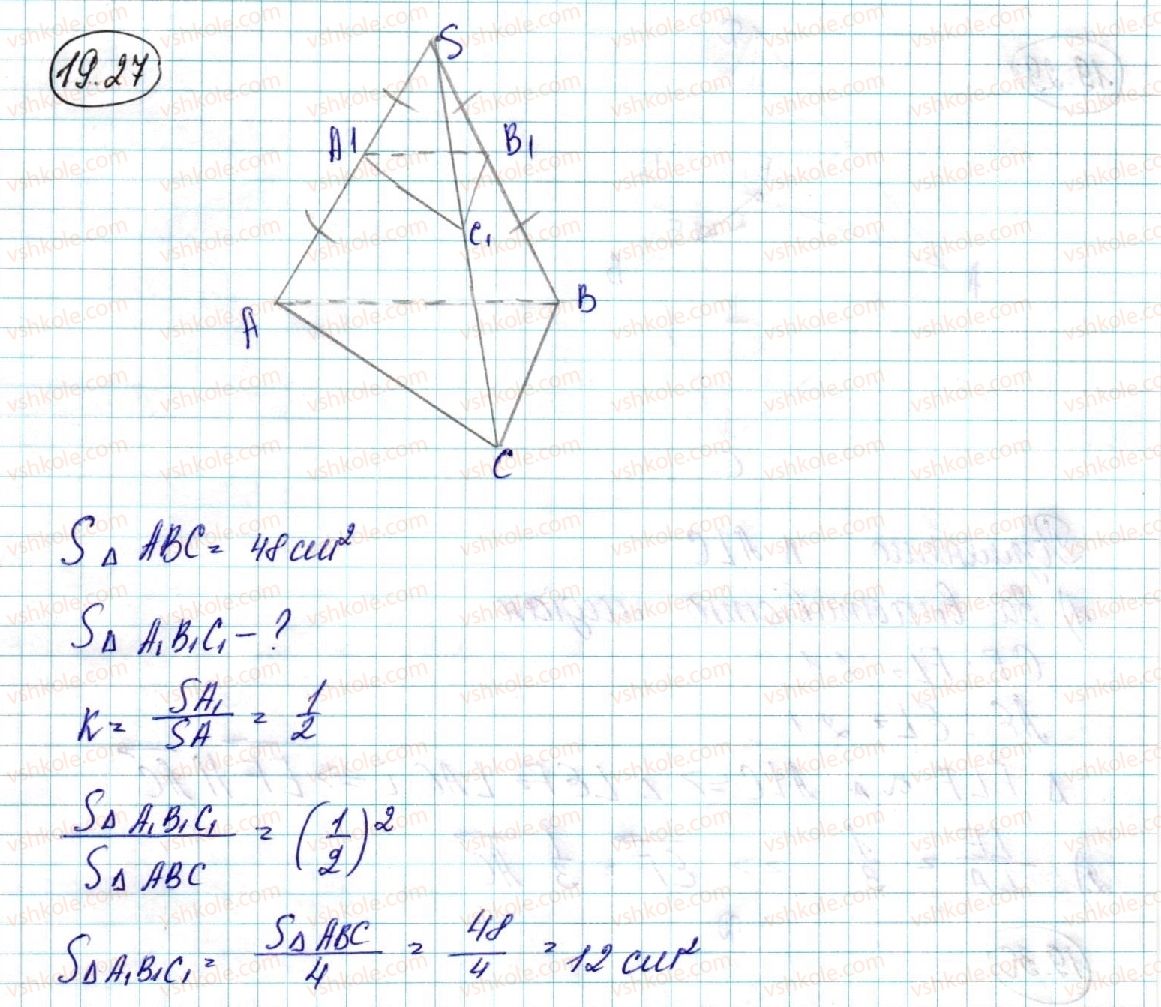 19.27
S
A1 B₁
C₁
A B
C
S△ ABC = 48 см²
S△ A₁B₁C₁ - ?
K = SA₁/SA = 1/2
S△ A₁B₁C₁ / S△ ABC = (1/2)²
S△ A₁B₁C₁ = S△ ABC / 4 = 48/4 = 12 см²
vshkole.com